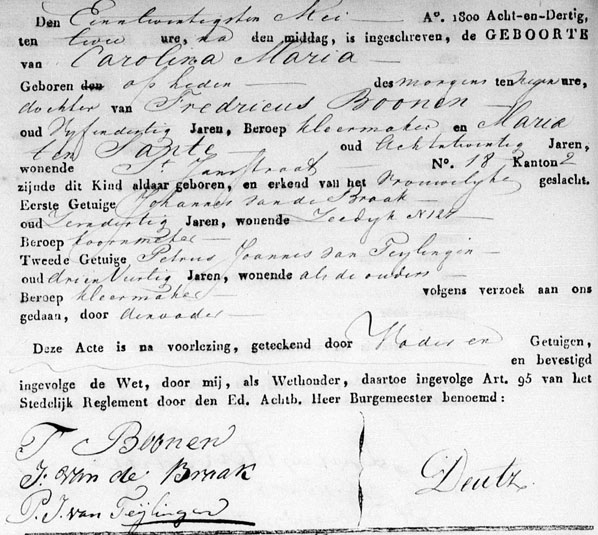 Den Eenentwintigsten Mei — A°. 1800 Acht-en-Dertig,
ten twee ure, na den middag, is ingeschreven, de GEBOORTE
van Carolina Maria —
Geboren den op heden des morgens ten negen ure,
dochter van Fredricus Boonen —
oud Vyfendertig Jaren, Beroep kleermaker en Maria
ten Sante — oud Achtentwintig Jaren,
wonende St. Jansstraat — N°. 18 Kanton 2
zijnde dit Kind aldaar geboren, en erkend van het Vrouwelyke geslacht.
Eerste Getuige Johannes van de Braak —
oud Jaren, wonende Zeedyk N 128
Beroep —
Tweede Getuige Petrus Joannes van Teylingen
oud drien Veertig Jaren, wonende als de ouders —
Beroep kleermaker — volgens verzoek aan ons
gedaan, door den vader —
Deze Acte is na voorlezing, geteekend door Vader en Getuigen,
en bevestigd
ingevolge de Wet, door mij, als Wethouder, daartoe ingevolge Art. 95 van het
Stedelijk Reglement door den Ed. Achtb. Heer Burgemeester benoemd:
F Boonen
J. van de Braak
P. J. van Teijlingen
Deutz